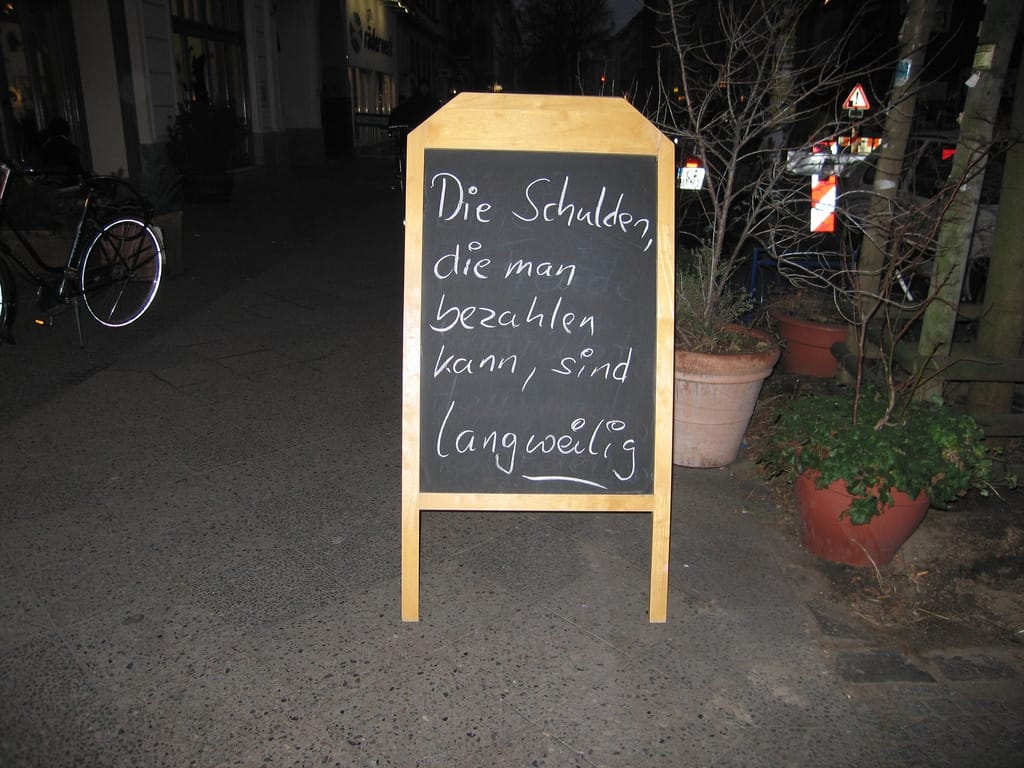 Die Schulden,
die man
bezahlen
kann, sind
langweilig